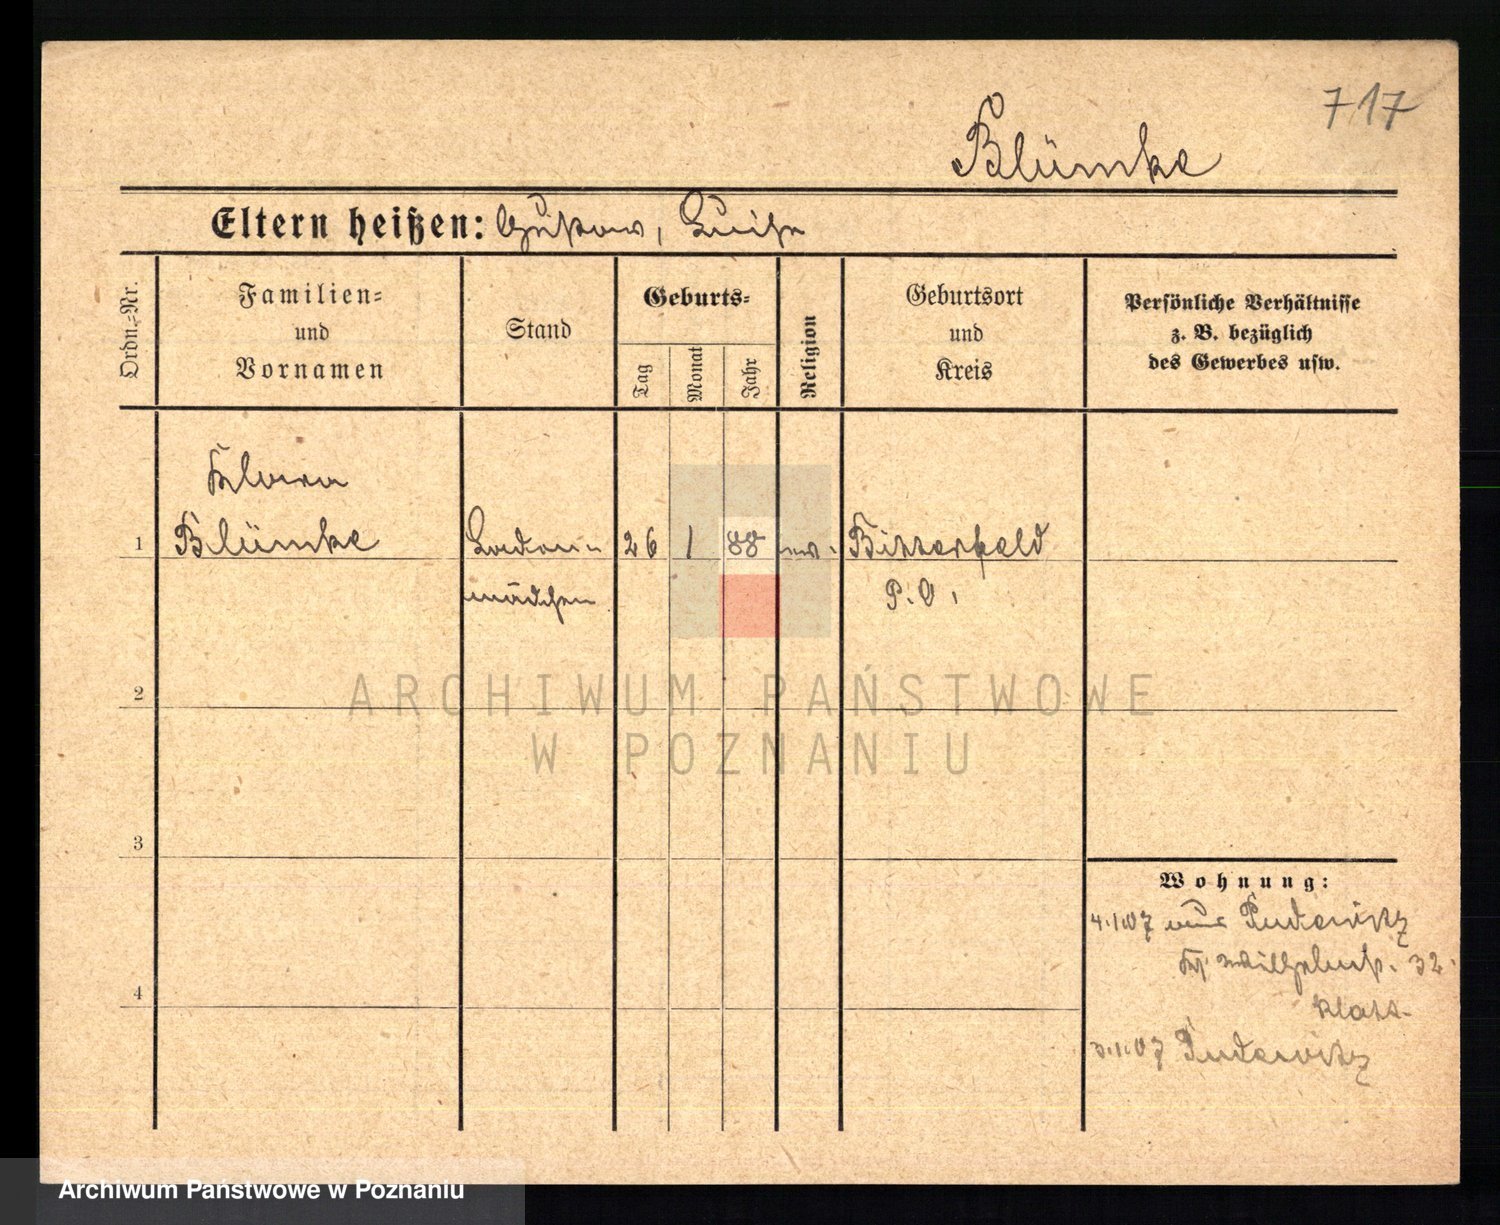 717
Blümke
Eltern heißen: Gustav, Luise
Ordn.-Nr.
Familien-
und
Vornamen
Stand
Geburts-
Tag
Monat
Jahr
Religion
Geburtsort
und
Kreis
Persönliche Verhältnisse
z. B. bezüglich
des Gewerbes usw.
Klara
1 Blümke
Laden-
mädchen
26 1 88
Bitterfeld
P. O.
2
ARCHIWUM PAŃSTWOWE
W POZNANIU
3
4
Wohnung:
4.1.07 aus Pudewitz
32.
Klatt
3.1.07 Pudewitz
Archiwum Państwowe w Poznaniu